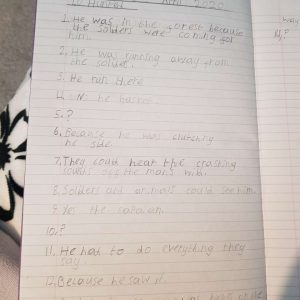 Hunted April 2020
1. He was in the forest because
the solders were coming for
him.
2. He was running away from
the soldier.
3. He ran there
4. No he
5. ?
6. Because he was clutching
he side
7. They could hear the crashing
sounds off the mans
8. Solders and animals could see him.
9. Yes the
10. ?
11. He had to do everything they
say.
12. Because he saw it.